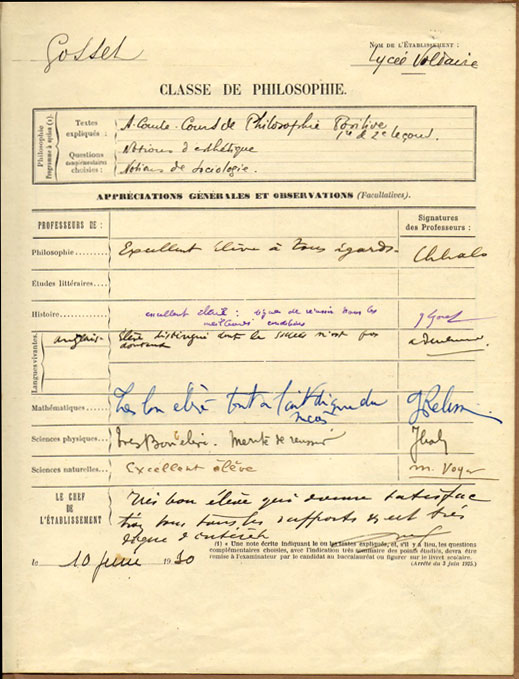 Gosset
NOM DE L'ÉTABLISSEMENT :
Lycée Voltaire
CLASSE DE PHILOSOPHIE.
Philosophie
Programme à option (1).
Textes expliqués :
A. Comte. Cours de Philosophie Positive
1re et 2e leçons.
Questions complémentaires choisies :
Notions d'esthétique
Notions de sociologie.
APPRÉCIATIONS GÉNÉRALES ET OBSERVATIONS (Facultatives).
PROFESSEURS DE :
Signatures des Professeurs :
Philosophie
Excellent élève à tous égards.
Études littéraires
Histoire
excellent élève : digne de réussir dans les
meilleures conditions
Langues vivantes
anglais
Elève distingué dont le succès n'est pas
douteux
Mathématiques
Très bon élève tout à fait digne du
succès
Sciences physiques
Très Bon élève. Mérite de réussir
Sciences naturelles
Excellent élève
M. Voyer
LE CHEF DE L'ÉTABLISSEMENT
Très bon élève qui donne satisfac
tion sous tous les rapports et est très
digne d'intérêt
le 10 juin 1930
(1) Une note écrite indiquant le ou les textes expliqués, et, s'il y a lieu, les questions
complémentaires choisies, avec l'indication très sommaire des points étudiés, devra être
remise à l'examinateur par le candidat au baccalauréat ou figurer sur le livret scolaire.
(Arrêté du 3 juin 1925.)